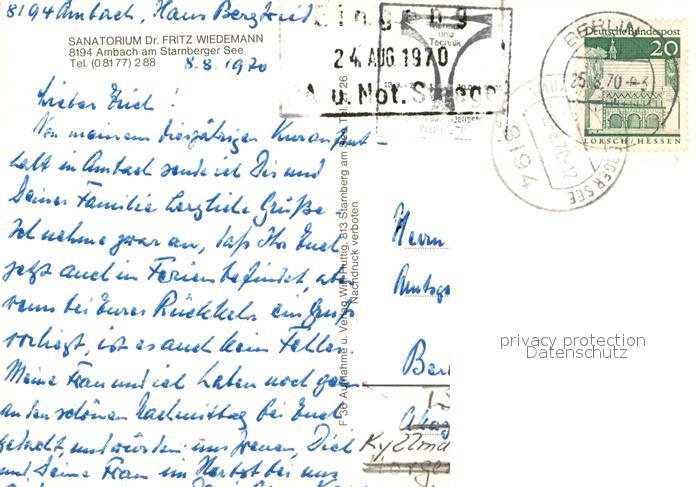 8194 Ambach, Haus Bergfried
SANATORIUM Dr. FRITZ WIEDEMANN
8194 Ambach am Starnberger See
Tel. (0 81 77) 2 88
8.8.1970
Lieber Erich!
Von meinem diesjährigen Kuraufent-
halt in Ambach sende ich Dir und
Deiner Familie herzliche Grüße.
Ich nehme zwar an, daß Ihr Euch
jetzt auch in Ferien befindet, aber
wenn bei Eurer Rückkehr ein Gruß
vorliegt, ist es auch kein Fehler.
Meine Frau und ich haben noch gern
an den schönen Nachmittag bei Euch
gedacht, und würden uns freuen, Dich
und Deine Frau im Herbst bei uns
F 36 Aufnahme u. Verlag Will Huttig, 813 Starnberg am See Tel.
Nachdruck verboten
Eingang
24. AUG. 1970
A. u. Not.
und
Technik
BERLIN
25.8.70
8194
Deutsche Bundespost
20
LORSCH/HESSEN
Herrn
Amtsge
Berl
Kyllma
privacy protection
Datenschutz